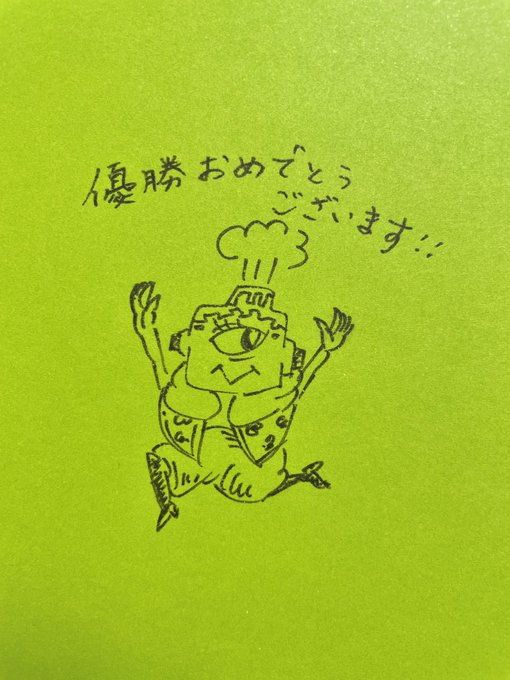 優勝おめでとう
ございます!!